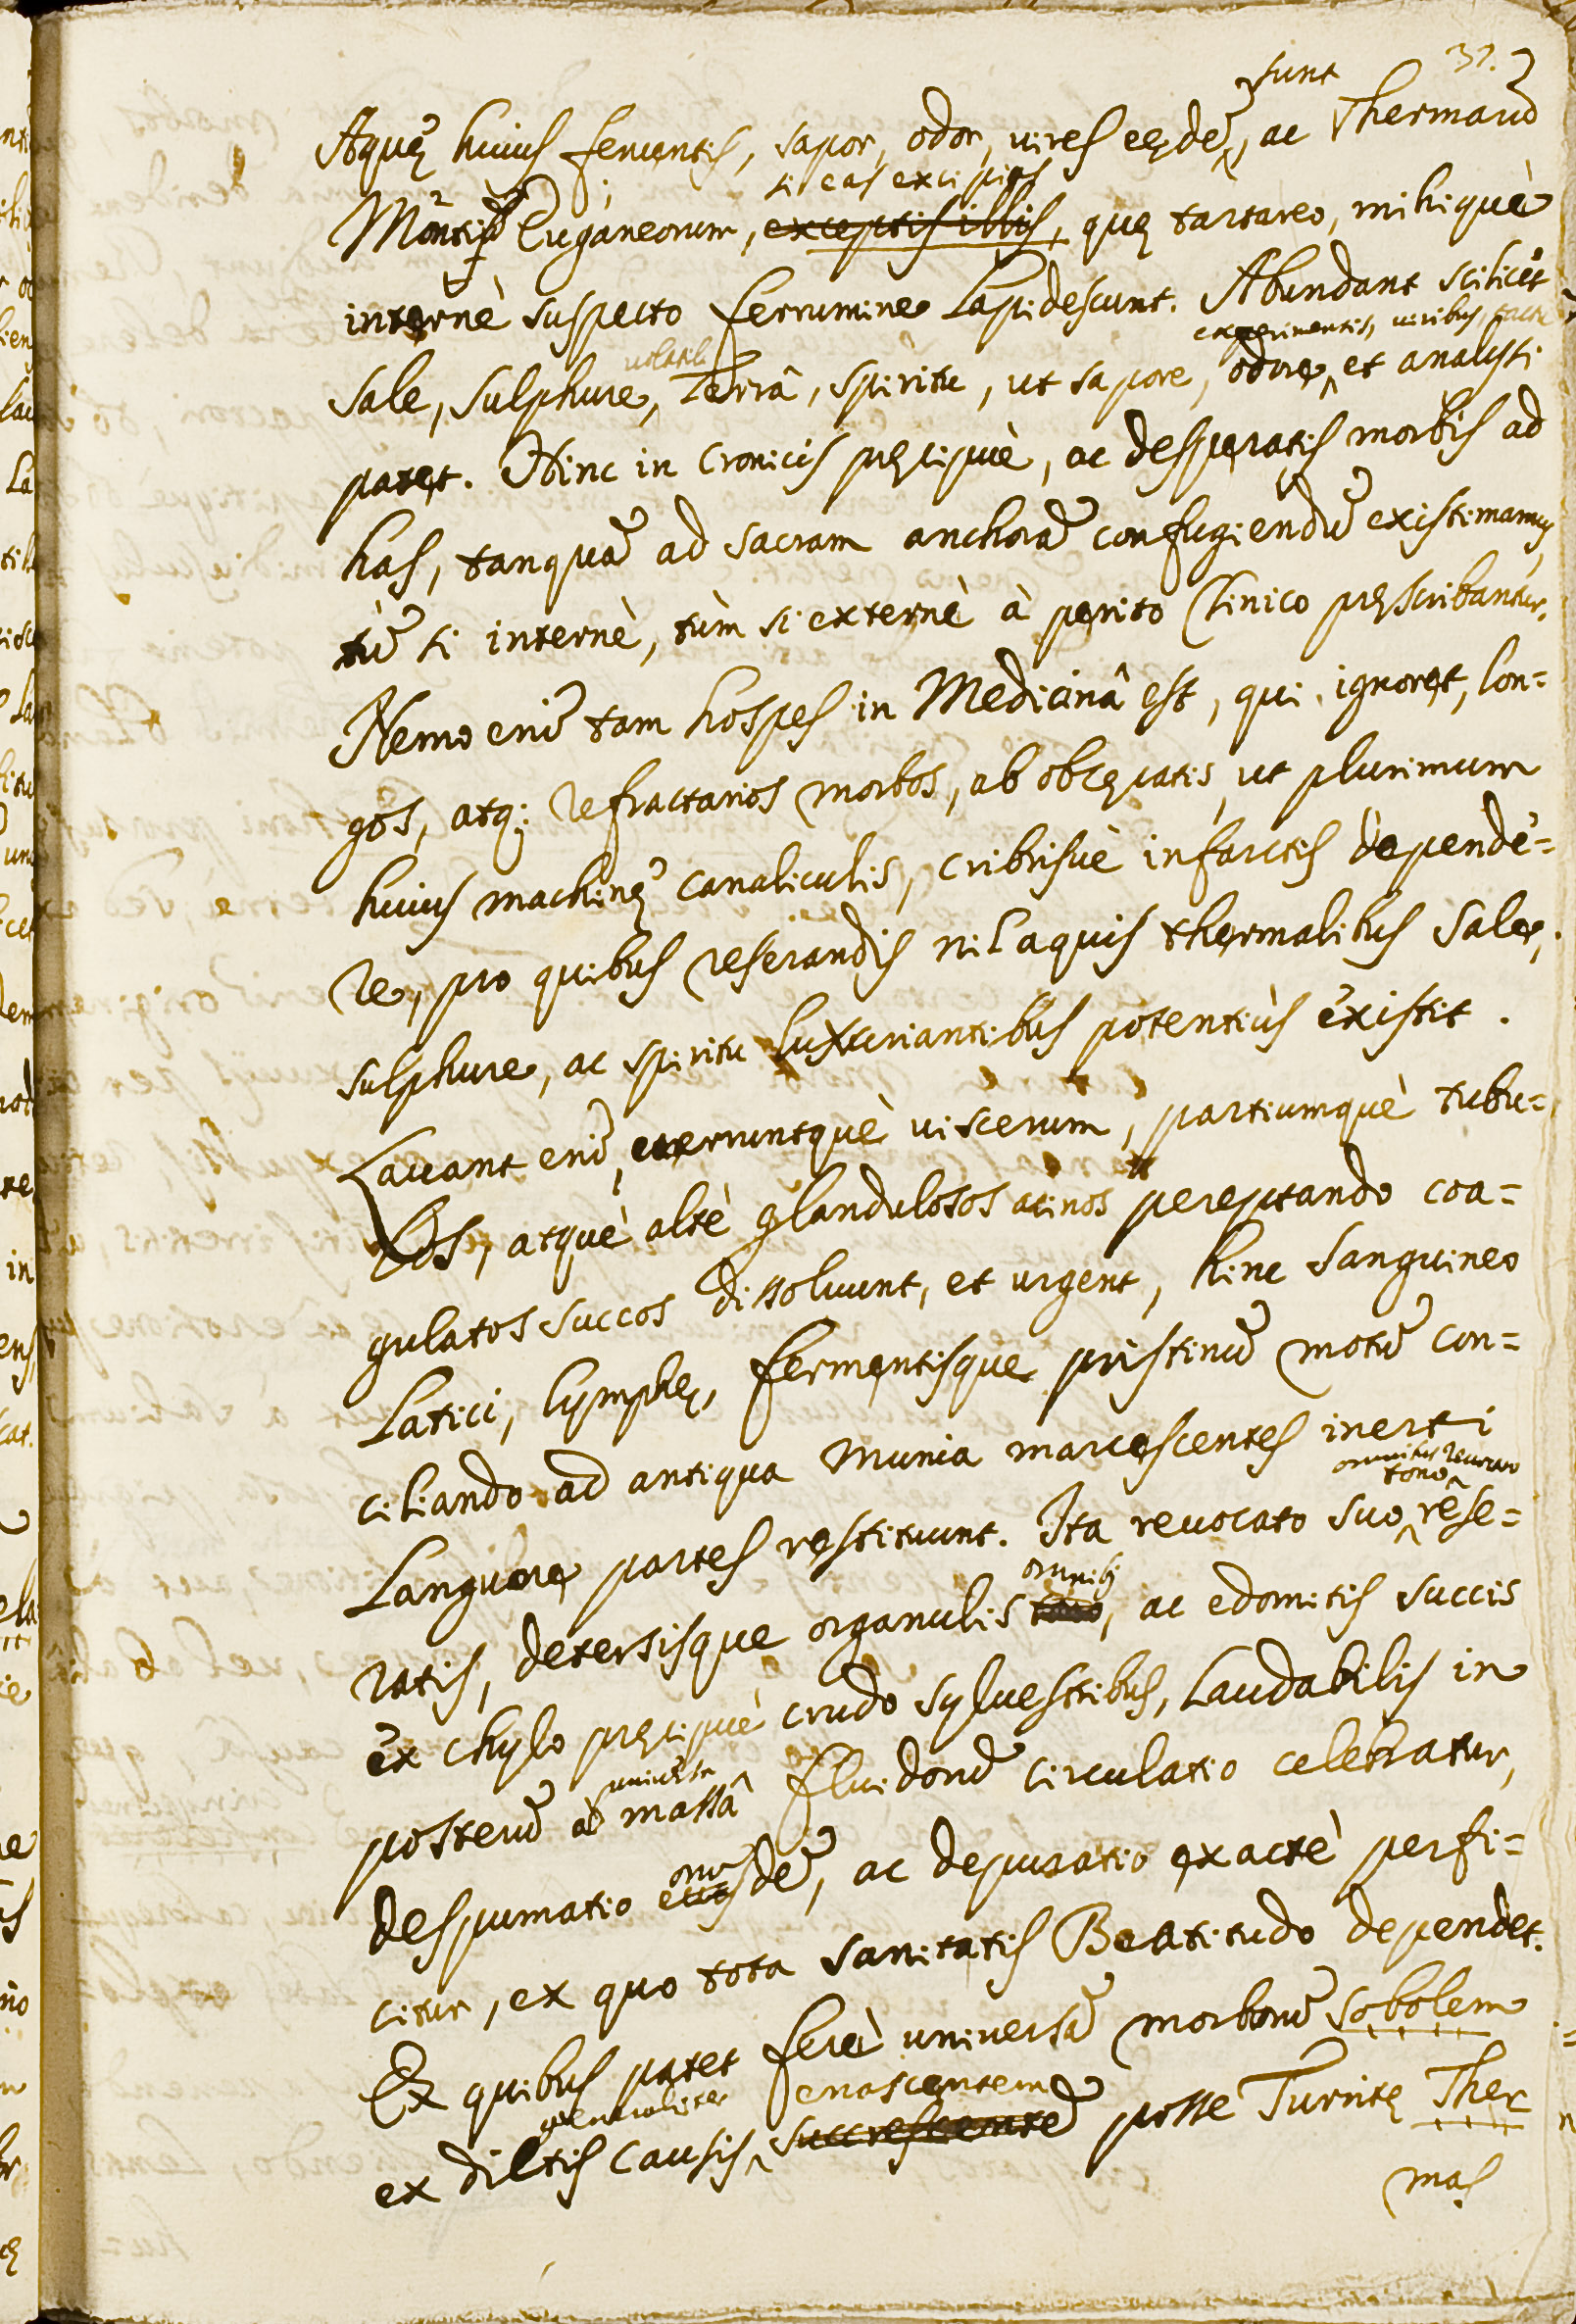 37.
sunt
Aquę huius feruentis, sapor, odor, uires eędē, ac Thermarū
si eas excipias
Montiū Euganeorum, exceptis illis, quę tartareo, mihique
internè suspecto ferrumine Lapidescunt. Abundant scilicet
volatili experimentis, uiribus, tactu
Sale, Sulphure, Terrâ, spiritu, ut sapore, odore, et analysi
patet. Hinc in Cronicis pręcipuè, ac desperatis morbis ad
has, tanquā ad sacram anchorā confugiendū existimamus,
tū si internè, tùm si externè à perito Clinico pręscribantur.
Nemo enī tam hospes in Medicinâ est, qui ignoret, lon=
gos, atq; refractarios morbos, ab obcęcatis, ut plurimum
huius machinę canaliculis, cribrisuè infarctis dependē=
re, pro quibus reserandis nil aquis thermalibus Sale,
sulphure, ac spiritu luxuriantibus potentiùs existit.
Lauant enī, euerruntquè uiscerum, partiumquè tubu=
los, atquè altè glandulosos acinos pereptando coa=
gulatos succos dissoluunt, et urgent, hinc Sanguineo
Latici, lymphę, fermentisque pristinū motū con=
ciliando ad antiqua munia marcescentes inerti
omnibus
tono
Languore partes restituunt. Ita reuocato suo rese=
omnib;
ratis, detersisque organulis tono, ac edomitis succis
ex chylo pręcipuè crudo syluestribus, Laudabilis in
uniuersa
posterū à massâ fluidorū circulatio celebratur,
despumatio eiusdē, ac depuratio exactè perfi=
citur, ex quo tota sanitatis Beatitudo dependet.
Ex quibus patet ferè uniuersā morborū sobolem
generaliter enascentem
ex dictis causis succrescentē posse Turritę Ther
mas